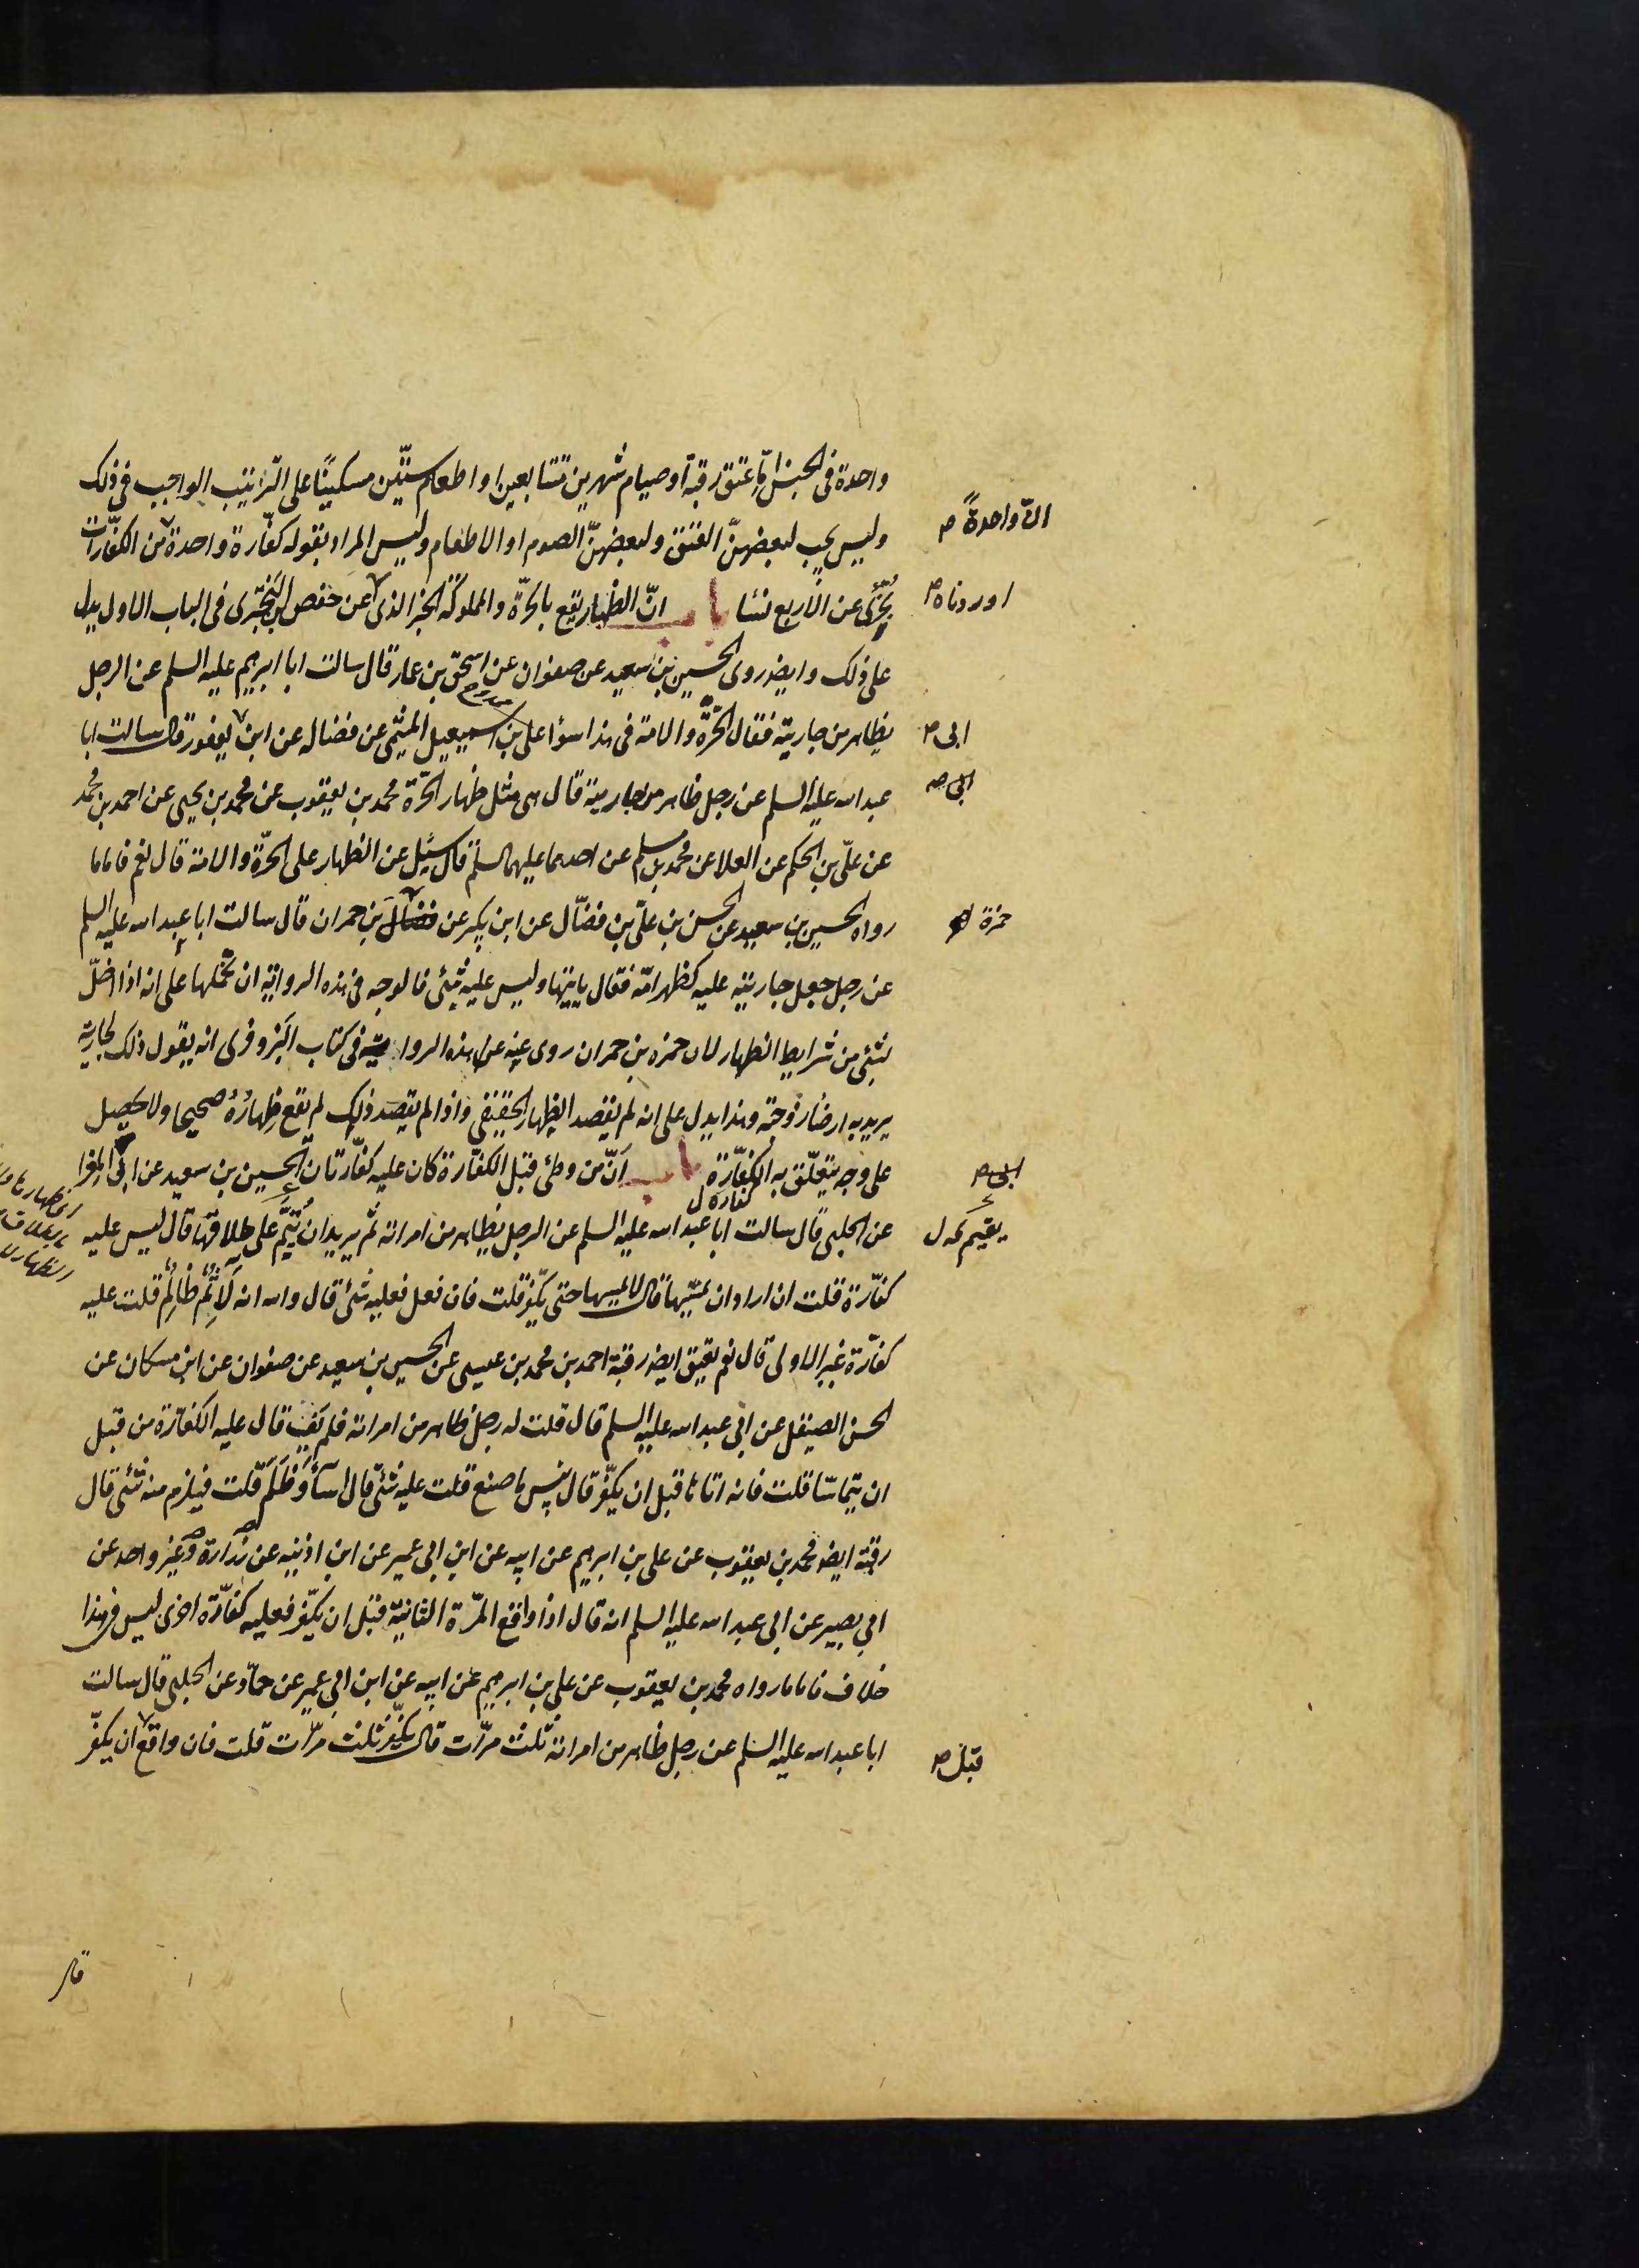 واحدة فى الجنس اِمّا عتق رقبة او صيام شهرين متتابعين او اطعام ستّين مسكينًا على الترتيب الواجب فى ذلك
انّ واحدةً ص
وليس يجب لبعضهنّ العتق ولبعضهنّ الصوم او الاطعام وليس المراد بقوله كفّارة واحدة من الكفّارات
يُجْزَى عن الاربع نسا باب انّ الظهار يقع بالحرّة والمملوكة الخبر الذى عن حفص بن البَخْتَرى فى الباب الاول يدل
اوردناه ص
على ذلك وايضا روى الحسين بن سعيد عن صفوان عن اسحق بن عمار قال سالت ابا ابرهيم عليه السلم عن الرجل
يظاهر من جاريته فقال الحُرّة والامة فى هذا سوا على بن اسمعيل الميثمى عن فضاله عن ابن يعفور قال سالت ابا
ابى ص
عبد الله عليه السلم عن رجل ظاهر من جاريته قال هى مثل ظهار الحرّة محمد بن يعقوب عن محمد بن يحيى عن احمد بن محمد
ابى ص
عن علىّ بن الحكم عن العلا عن محمد بن مسلم عن احدهما عليهما السلم قال سئل عن الظهار على الحرّة والامة قال نعم فاما ما
رواه الحسين بن سعيد عن الحسن بن علىّ بن فضّال عن ابن بكير عن فضال بن حمران قال سالت ابا عبد الله عليه السلم
حمزة
عن رجل جعل جاريته عليه كظهر امّه فقال ياتيها وليس عليه شئ فالوجه فى هذه الرواية ان نحملها على انه اذا اخلّ
بشئ من شرايط الظهار لان حمزه بن حمران روى عنه هذه الرواية فى كتاب البزوفرى انه يقول ذلك لجاريته
يريد به ارضا زوجته وهذا يدل على انه لم يقصد الظهار الحقيقى واذا لم يقصد ذلك لم يقع ظِهارُهُ صحيحا ولا يحصل
على وجه يتعلّق به الكفّارة باب اَنّ من وطئ قبل الكفّارة كان عليه كفّارتان الحسين بن سعيد عن ابى المغرا
ابى ص
كفاره ل
عن الحلبى قال سالت ابا عبد الله عليه السلم عن الرجل يظاهر من امراته ثمّ يريد ان يُتِمّ على طلاقها قال ليس عليه
يقيم ل
كفّارة قلت ان اراد ان يمسّها قال لا يمسها حتى يكفّر قلت فان فعل فعليه شئ قال والله انه لَاٰثِمٌ ظَالِمٌ قلت عليه
كفّارة غير الاولى قال نعم يعتق ايضا رقبة احمد بن محمد بن عيسى عن الحسين بن سعيد عن صفوان عن ابن مسكان عن
الحسن الصيقل عن ابى عبد الله عليه السلم قال قلت له رجل ظاهر من امراته فلم يَفِ قال عليه الكفّارة من قبل
ان يتماسّا قلت فانه اتاها قبل ان يكفّر قال بئس ما صنع قلت عليه شئ قال اَساءَ وَظَلَمَ قلت فيلزمه منه شئ قال
رقبة ايضا محمد بن يعقوب عن على بن ابرهيم عن ابيه عن ابن ابى عمير عن ابن اذينه عن زرارة وَغير واحد عن
ابى بصير عن ابى عبد الله عليه السلم انه قال اذا واقع المرّة الثانية قبل ان يكفّر فعليه كفّارة اخرى ليس فى هذا
خلاف فاما ما رواه محمد بن يعقوب عن على بن ابرهيم عن ابيه عن ابن ابى عمير عن حمّاد عن الحلبى قال سالت
ابا عبد الله عليه السلم عن رجل ظاهر من امراته ثلث مرّات قال يكفّر ثلث مرّات قلت فان واقع ان يكفّر
قبل ص
قال